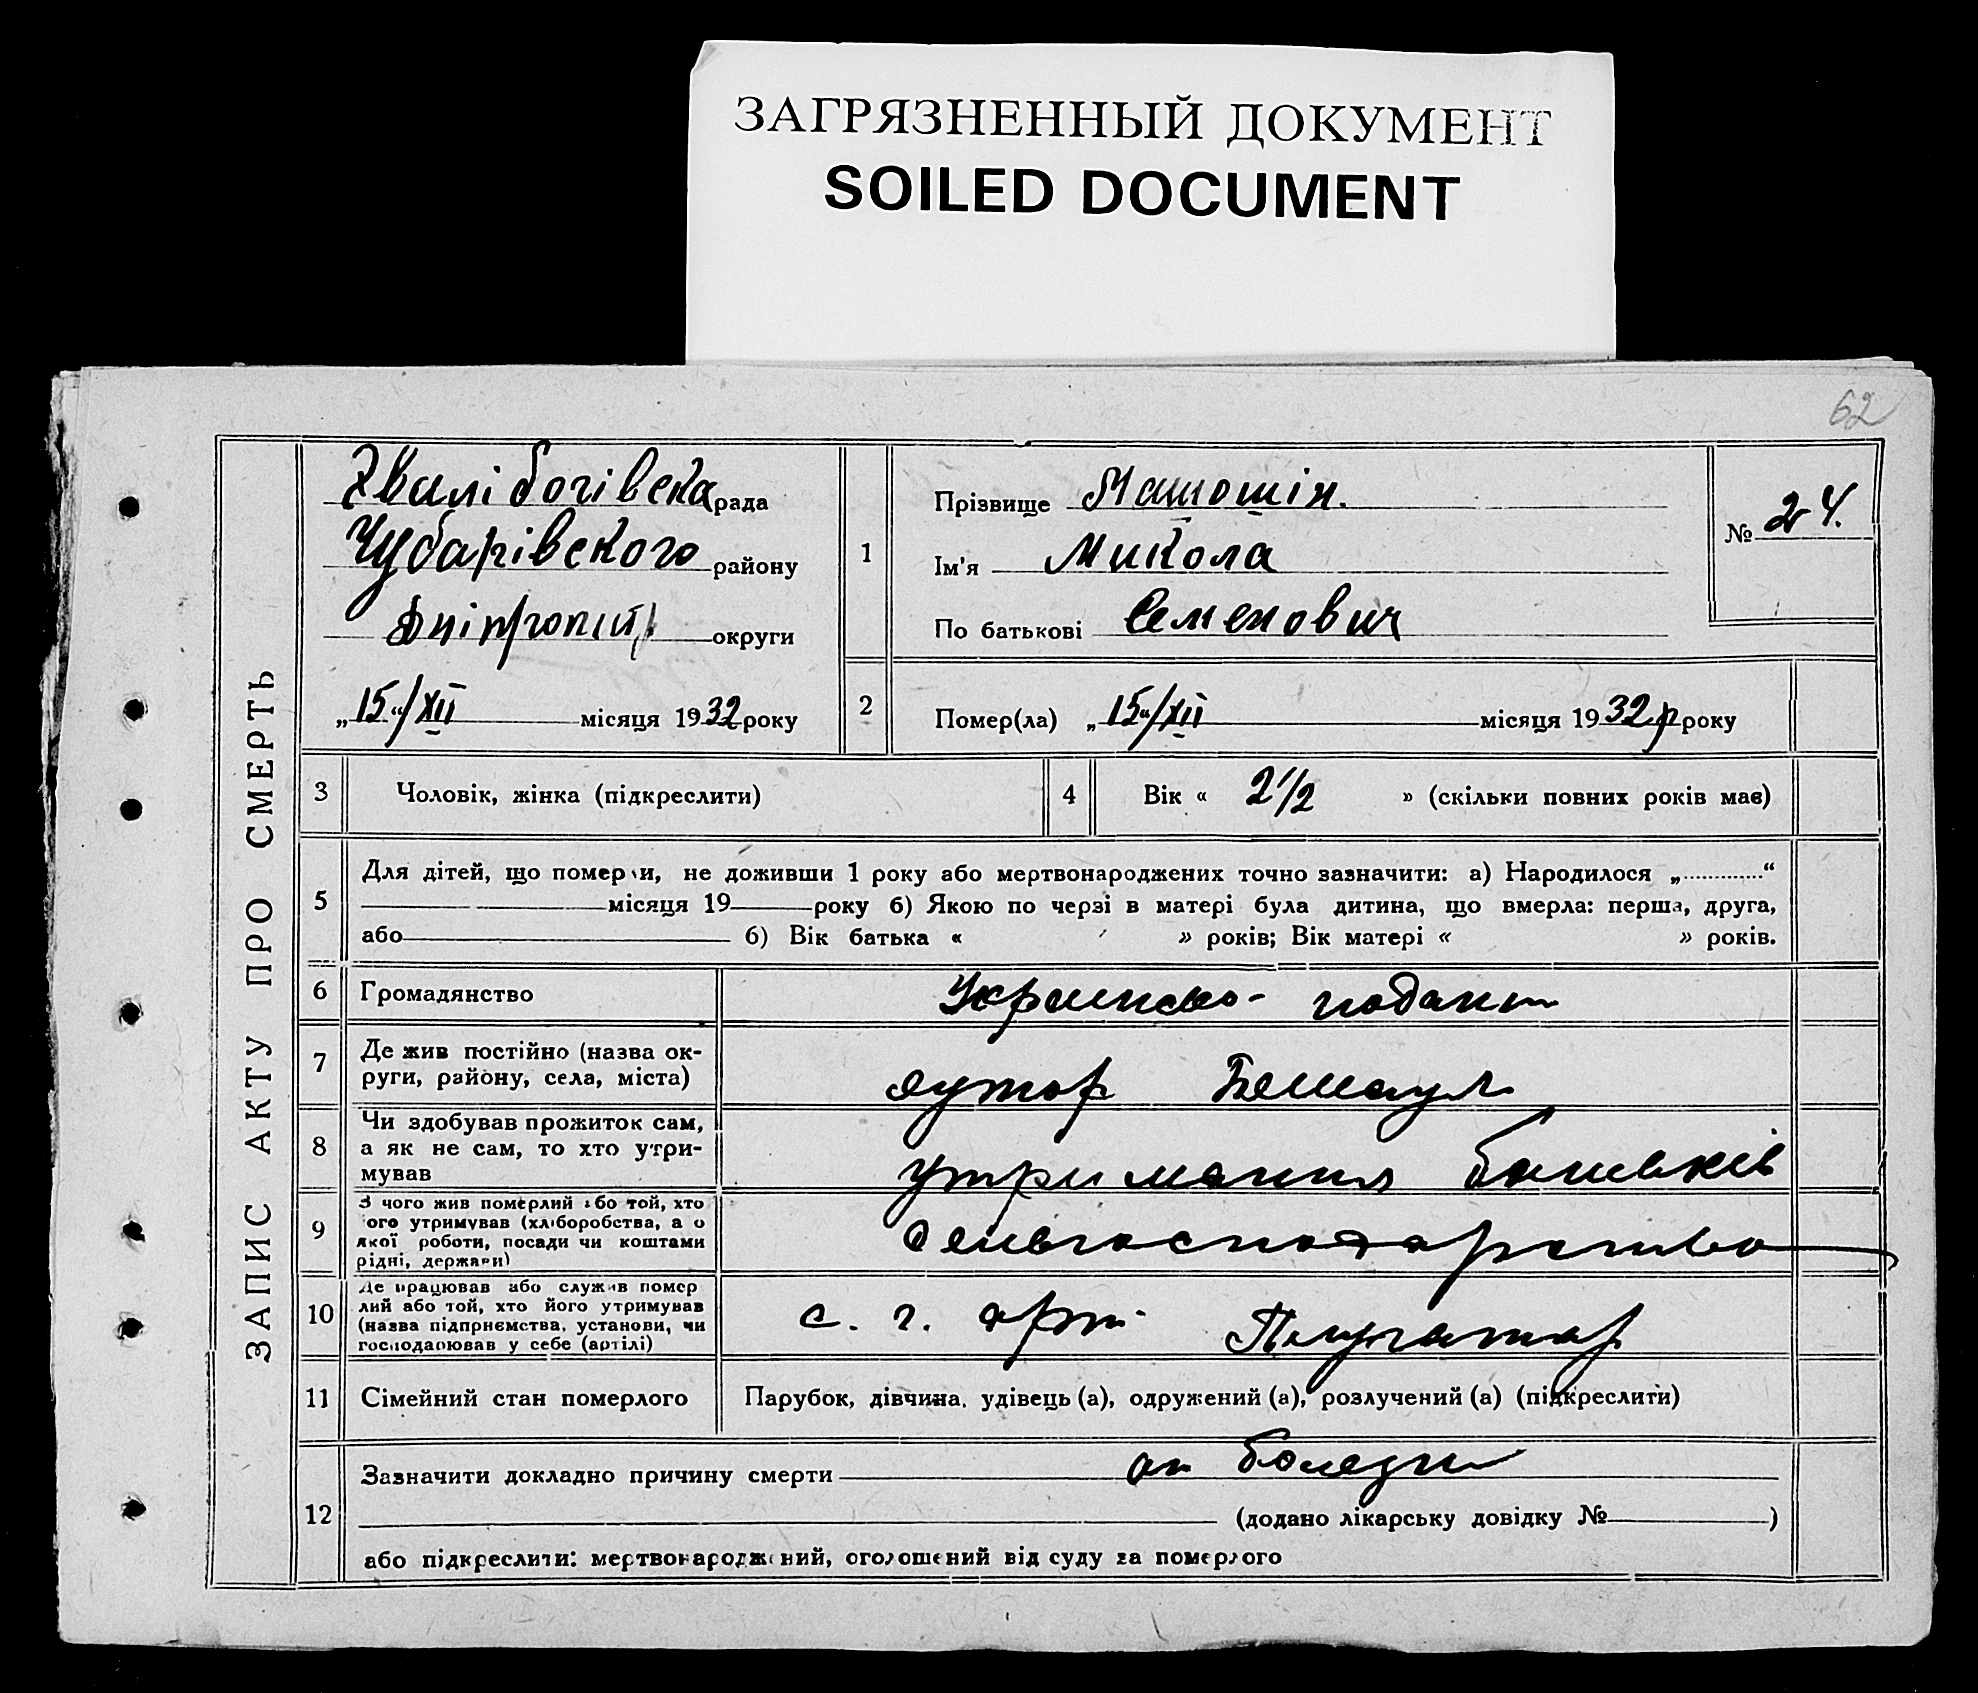 ЗАГРЯЗНЕННЫЙ ДОКУМЕНТ
SOILED DOCUMENT
62
ЗАПИС АКТУ ПРО СМЕРТЬ
Хвалібогівська рада
Чубарівского району
Дніпропит округи
„15“/XII місяця 1932 року
1
Прізвище Машошін.
Ім'я Микола
По батькові Семенович
№ 24.
2
Помер(ла) „15“/XII місяця 1932 р року
3 Чоловік, жінка (підкреслити)
4 Вік « 2 1/2 » (скільки повних років має)
5
Для дітей, що померли, не доживши 1 року або мертвонароджених точно зазначити: а) Народилося „ “
місяця 19 року б) Якою по черзі в матері була дитина, що вмерла: перша, друга,
або б) Вік батька « » років; Вік матері « » років.
6 Громадянство
7 Де жив постійно (назва ок-
руги, району, села, міста)
хутор
8 Чи здобував прожиток сам,
а як не сам, то хто утри-
мував
утримання батьків
9 З чого жив померлий або той, хто
ого утримував (хліборобства, а о
якої роботи, посади чи коштами
рідні, держави)
сельгосподарство
10 Де працював або служив помер
лий або той, хто його утримував
(назва підприємства, установи, чи
господарював у себе (артілі)
с. г. арт
11 Сімейний стан померлого Парубок, дівчина, удівець (а), одружений (а), розлучений (а) (підкреслити)
12 Зазначити докладно причину смерти от болезни
(додано лікарську довідку № )
або підкреслити: мертвонароджений, оголошений від суду за померлого